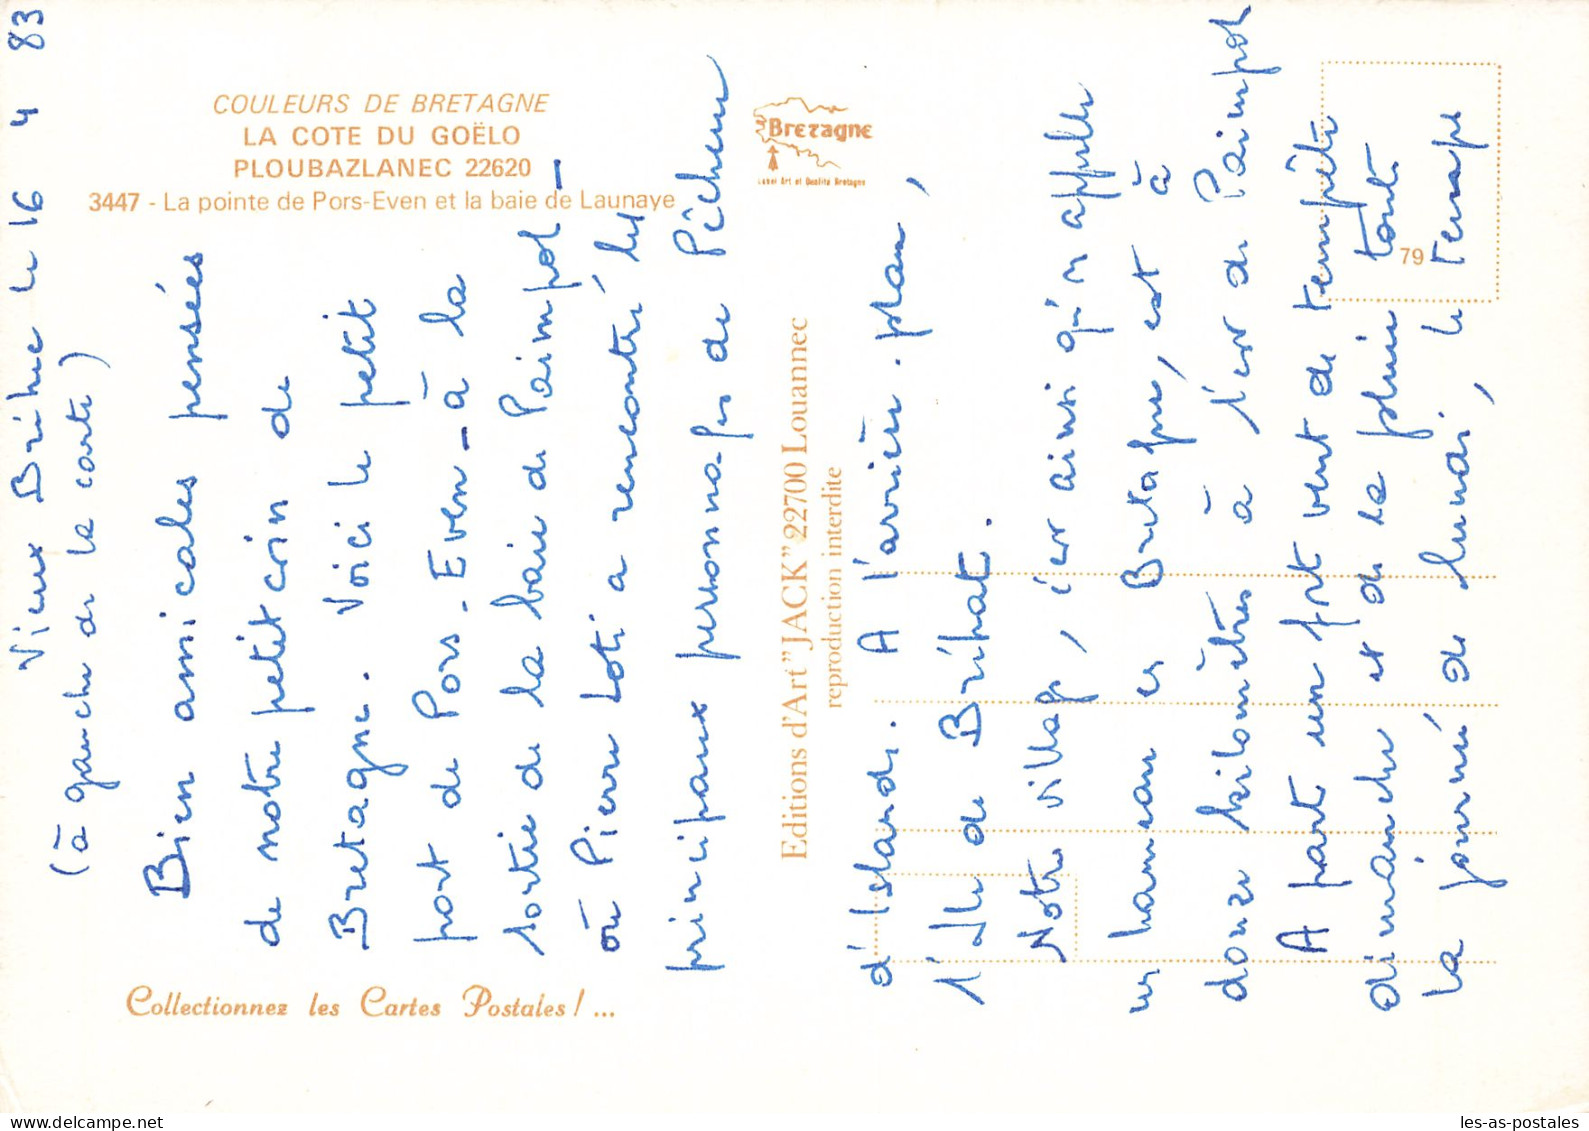 COULEURS DE BRETAGNE
LA COTE DU GOËLO
PLOUBAZLANEC 22620
3447 - La pointe de Pors-Even et la baie de Launaye
Bretagne
Label Art et Qualité Bretagne
79
Editions d'Art "JACK" 22700 Louannec
reproduction interdite
Collectionnez les Cartes Postales ! ...
Vieux Bréhec le 16 4 83
(à gauche de la carte)
Bien amicales pensées
de notre petit coin de
Bretagne. Voici le petit
port de Pors-Even - à la
sortie de la baie de Paimpol -
où Pierre Loti a rencontré les
principaux personnages de Pêcheur
d'Islande. A l'arrière-plan,
l'Ile de Bréhat.
Notre village, c'est ainsi qu'on appelle
un hameau en Bretagne, est à
douze kilomètres à l'est de Paimpol
A part un fort vent de tempête
dimanche et de la pluie toute
la journée de lundi, le temps
les-as-postales